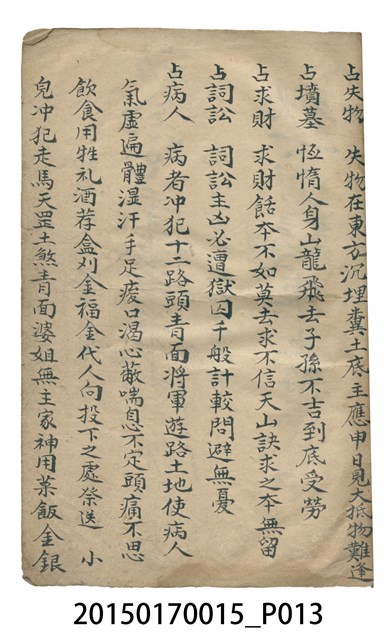 占失物　失物在東方沉埋糞土底主應申日見大抵物難逢
占墳墓　恆惰人身山龍飛去子孫不吉到底受勞
占求財　求財餂本不如莫去求不信天山訣求之本無留
占詞訟　詞訟主凶必遭獄囚千般計較問避無憂
占病人　病者冲犯十二路頭青面将軍遊路土地使病人
氣虛遍體湿汗手足痠口渴心蔽喘息不定頭痛不思
飲食用牲礼酒荐盒刈金福金代人向投下之處祭送　小
兒冲犯走馬天罡土煞青面婆姐無主家神用菜飯金銀
20150170015_P013